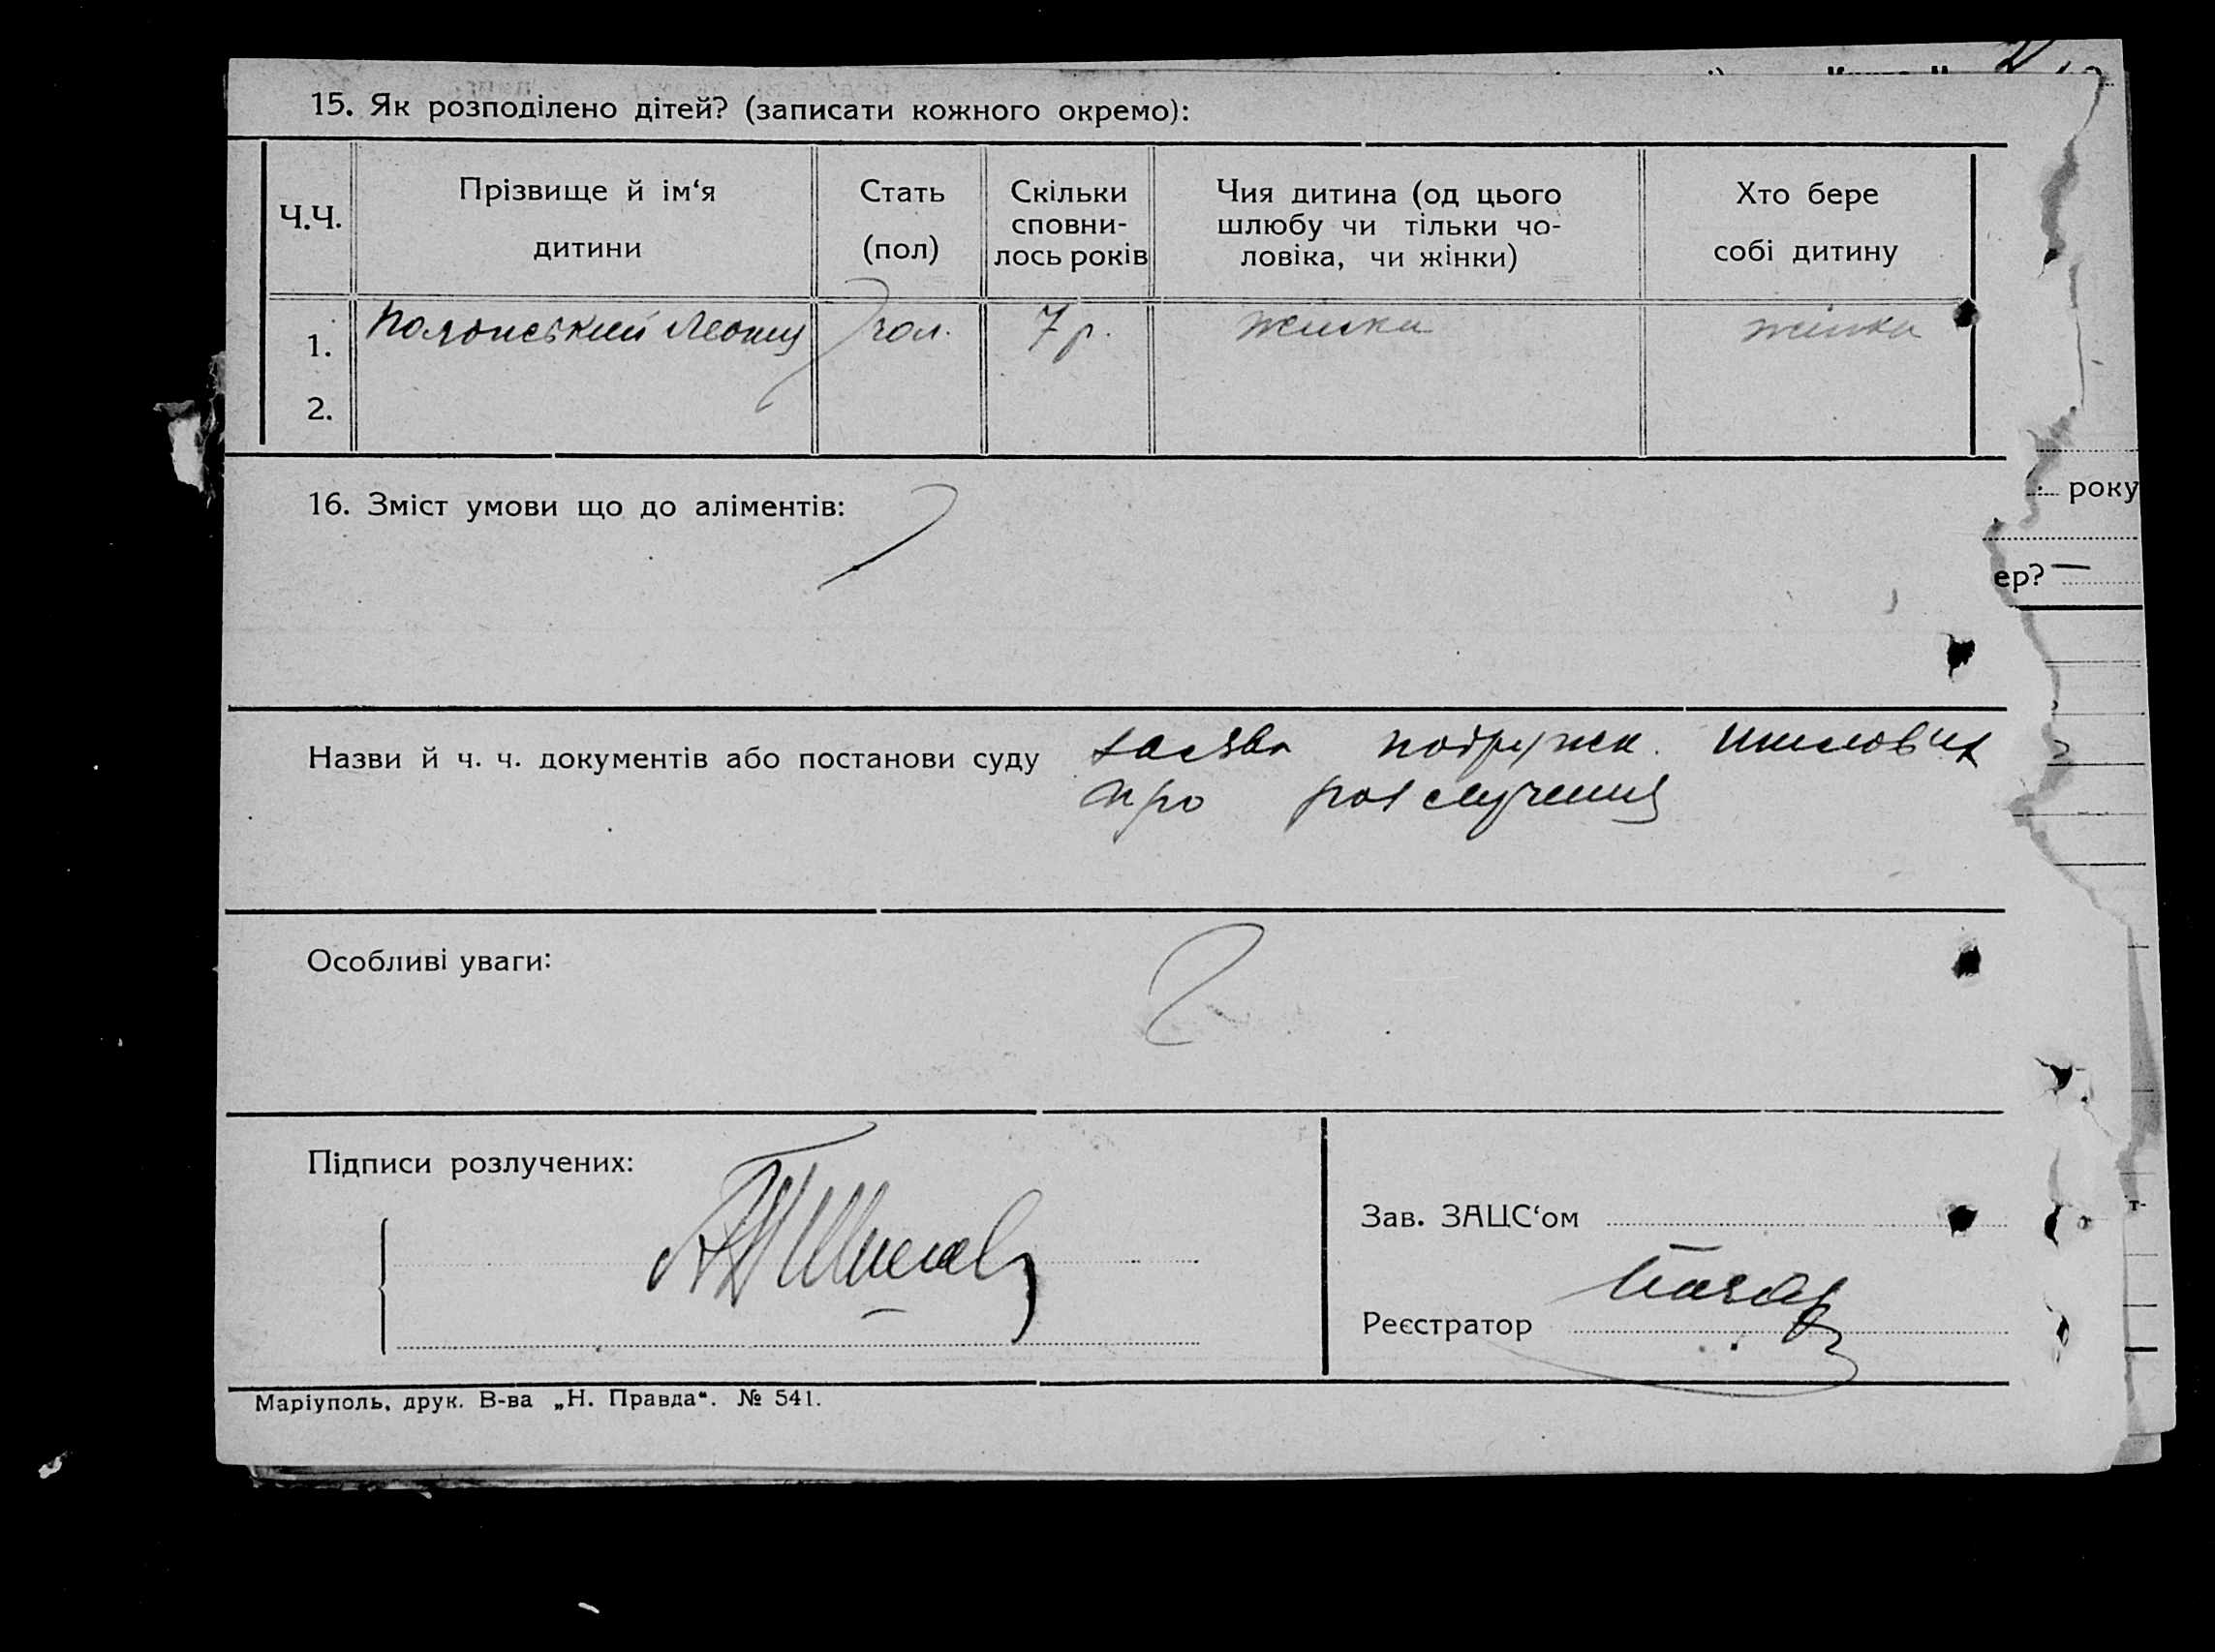 15. Як розподілено дітей? (записати кожного окремо):
Ч.Ч.
Прізвище й ім‘я
дитини
Стать
(пол)
Скільки
сповни-
лось років
Чия дитина (од цього
шлюбу чи тільки чо-
ловіка, чи жінки)
Хто бере
собі дитину
1. Полонський Леонид чол. 7 р. жінки жінка
2.
16. Зміст умови що до аліментів:
року
ер? —
Назви й ч. ч. документів або постанови суду заява подружж.
про розлучення
Особливі уваги:
Підписи розлучених:
Зав. ЗАЦС‘ом
Реєстратор
Маріуполь, друк. В-ва „Н. Правда“. № 541.